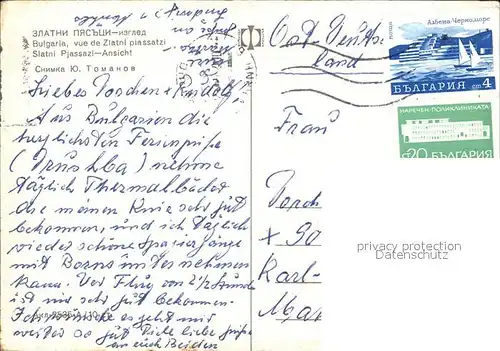 ЗЛАТНИ ПЯСЪЦИ—изглед
Bulgaria, vue de Zlatni piassatzi
Slatni Pjassazi—Ansicht
Снимка Ю. Томанов
Liebes Dorchen + Rudolf!
Aus Bulgarien die
herzlichsten Feriengrüße
(Drushba) nehme
täglich Thermalbäder
die meinen Knie sehr gut
bekommen, und ich täglich
wieder schöne Spaziergänge
mit unternehmen
kann. Der Flug von 2 1/2 Stunde
ist mir sehr gut bekommen.
Ich es geht mir
weiter so gut Viele liebe Grüße
an euch Beiden
Ost-Deutsch
land
Frau
Dorch
X 90
Karl-
Mar
Албена Черноморе
ПОЩА
БЪЛГАРИЯ ст 4
НАРЕЧЕН-ПОЛИКЛИНИКАТА
20 БЪЛГАРИЯ
privacy protection
Datenschutz